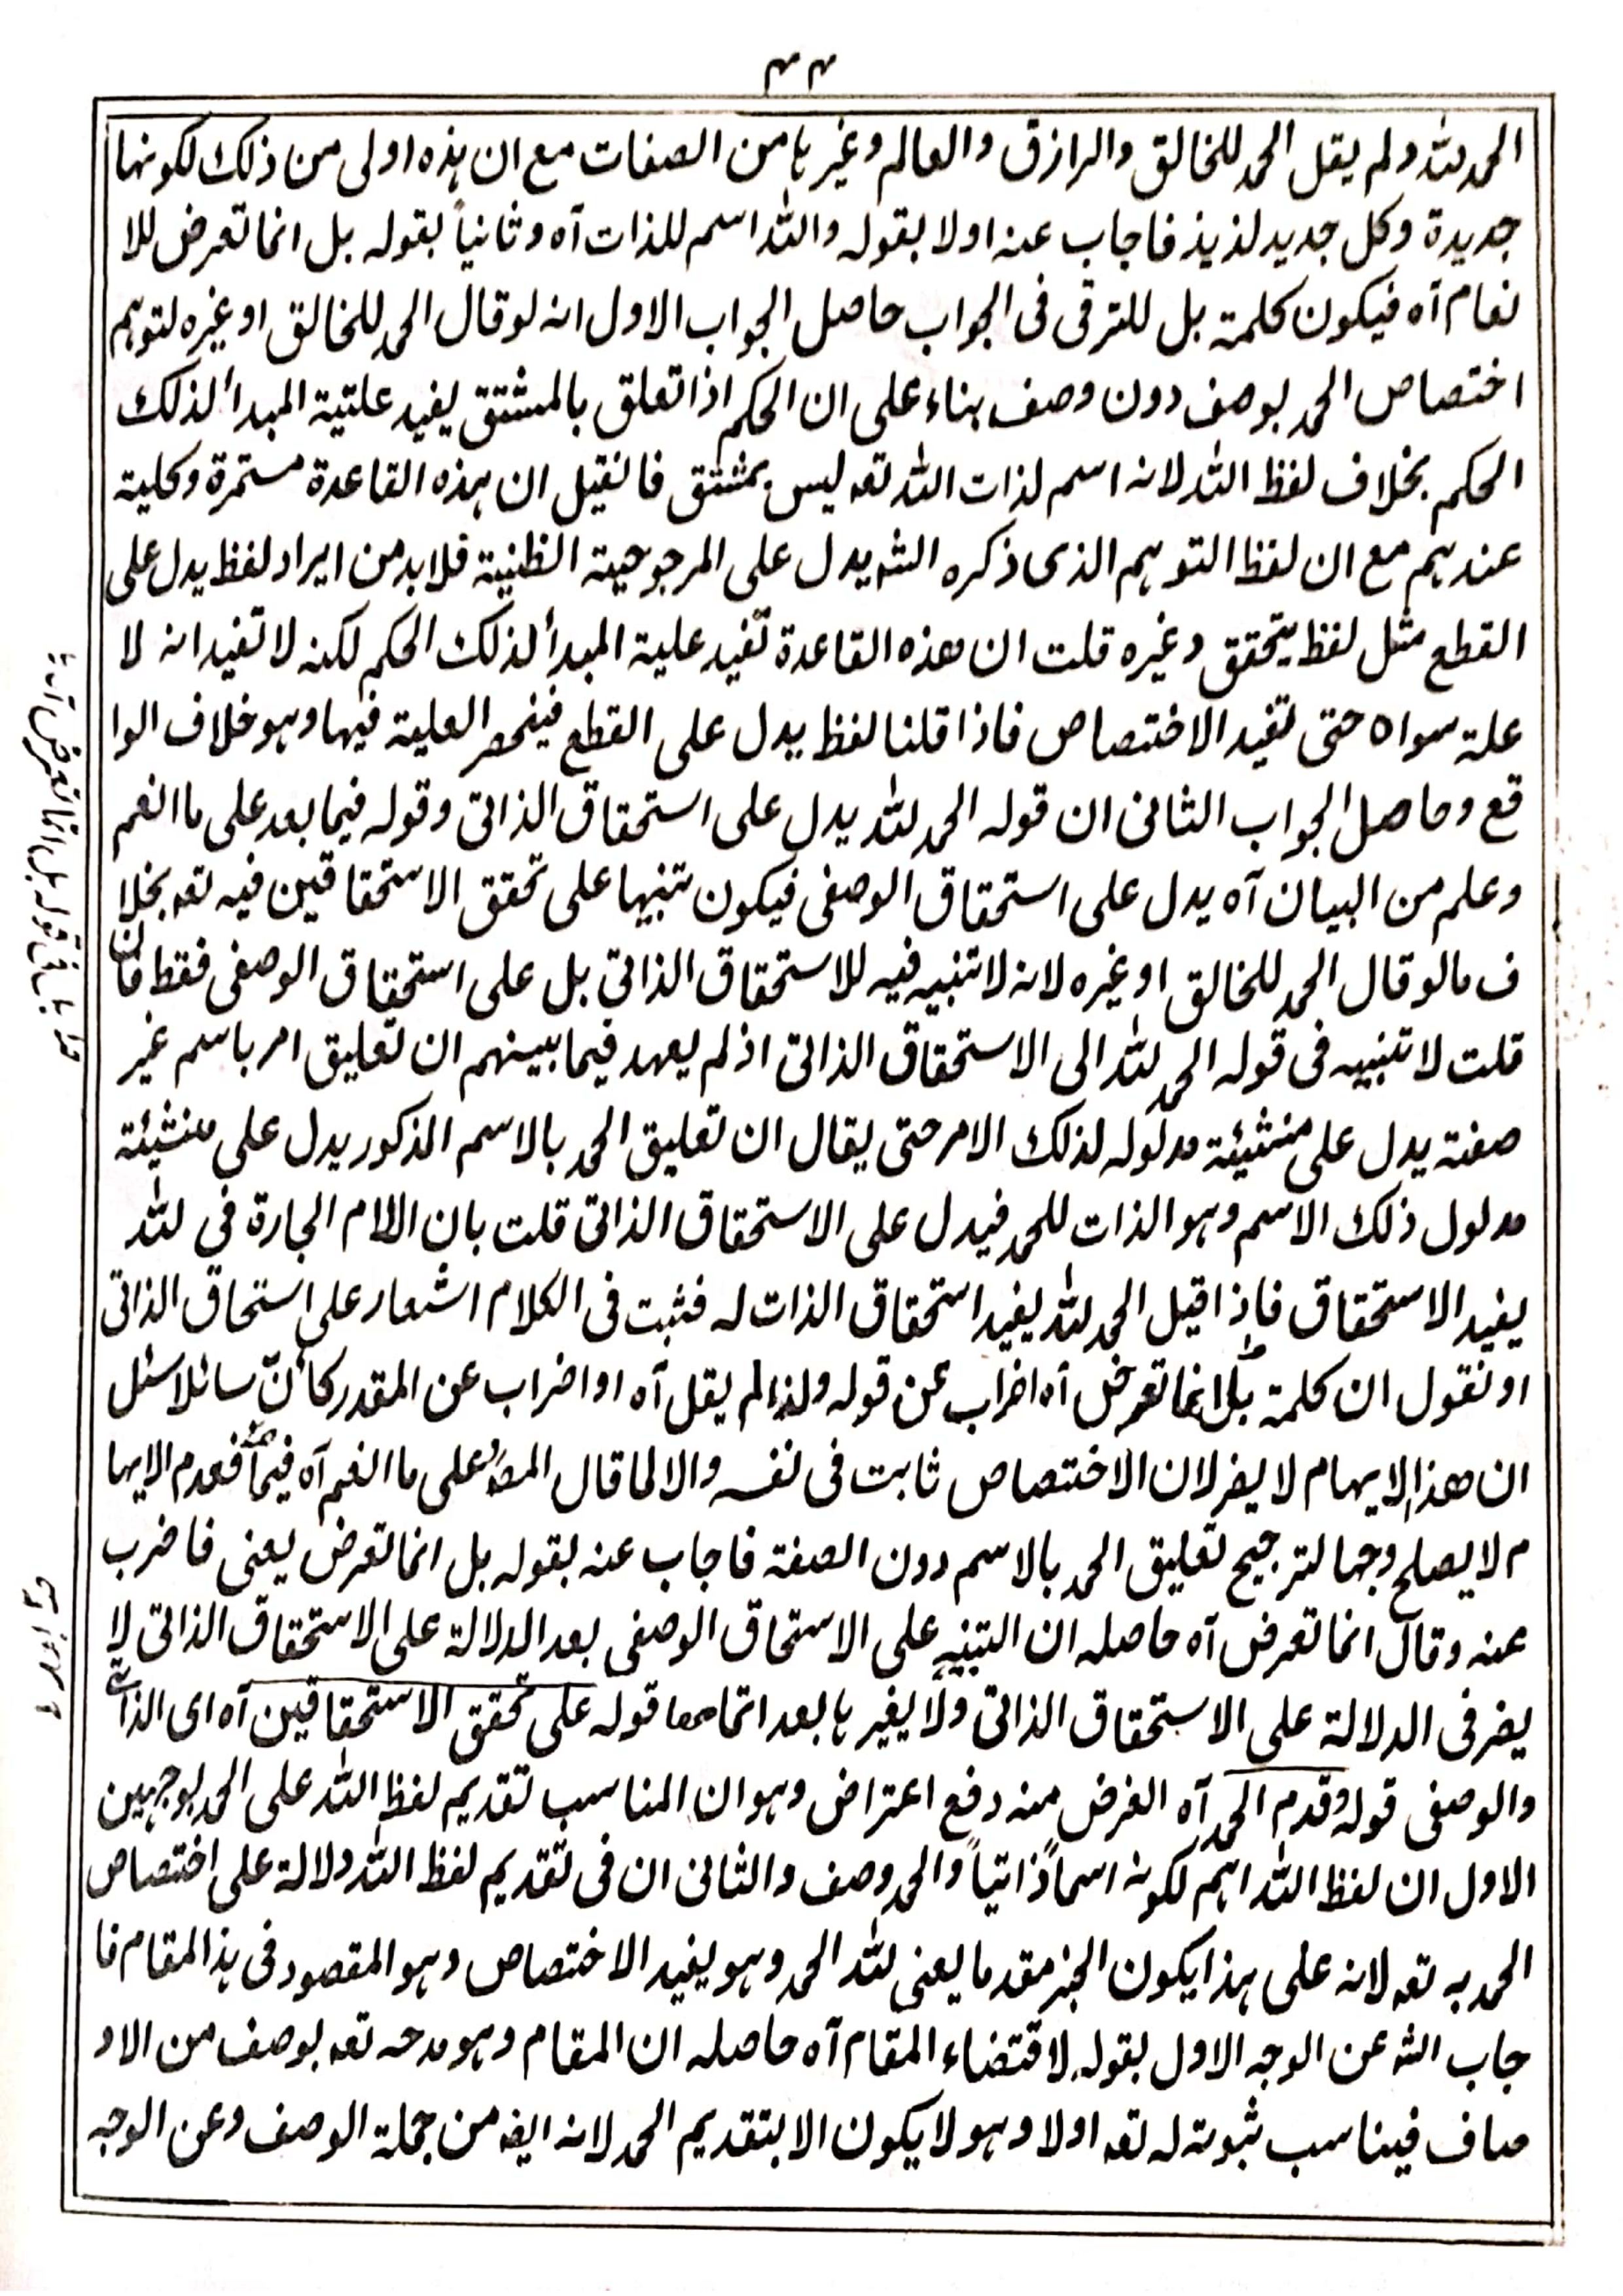 ۴۴
الحمد لله ولم يقل الحمد للخالق والرازق والعالم وغيرها من الصفات مع ان هذه اولى من ذلك لكونها
جديدة وكل جديد لذيذ فاجاب عنه اولا بقوله والله اسم للذات آه وثانياً بقوله بل انما تعرض للا
نعام آه فيكون كلمة بل للترقى فى الجواب حاصل الجواب الاول انه لو قال الحمد للخالق او غيره لتوهم
اختصاص الحمد بوصف دون وصف بناء على ان الحكم اذا تعلق بالمشتق يفيد علتية المبدأ لذلك
الحكم بخلاف لفظ الله لانه اسم لذات الله تعه ليس بمشتق فانقيل ان هذه القاعدة مستمرة وكلية
عندهم مع ان لفظ التوهم الذى ذكره الشه يدل على المرجوحية الظنية فلابد من ايراد لفظ يدل على
القطع مثل لفظ يتحقق وغيره قلت ان هذه القاعدة تفيد علية المبدأ لذلك الحكم لكنه لا تفيد انه لا
علة سواه حتى تفيد الاختصاص فاذا قلنا لفظ يدل على القطع فينحصر العلية فيها وهو خلاف الوا
قع وحاصل الجواب الثانى ان قوله الحمد لله يدل على استحقاق الذاتى وقوله فيما بعد على ما انعم
وعلم من البيان آه يدل على استحقاق الوصفى فيكون تنبيها على تحقق الاستحقاقين فيه تعه بخلا
ف ما لو قال الحمد للخالق او غيره لانه لا تنبيه فيه للاستحقاق الذاتى بل على استحقاق الوصفى فقط فان
قلت لا تنبيه فى قوله الحمد لله الى الاستحقاق الذاتى اذ لم يعهد فيما بينهم ان تعليق امر باسم غير
صفة يدل على منشيئة مدلوله لذلك الامر حتى يقال ان تعليق الحمد بالاسم المذكور يدل على منشيئة
مدلول ذلك الاسم وهو الذات للحمد فيدل على الاستحقاق الذاتى قلت بان اللام الجارة فى لله
يفيد الاستحقاق فاذا قيل الحمد لله يفيد استحقاق الذات له فثبت فى الكلام اشعار على استحاق الذاتى
او نقول ان كلمة بل انما تعرض آه اضراب عن قوله ولذا لم يقل آه او اضراب عن المقدر كأنّ سائلا سئل
ان هذا الايهام لا يضر لان الاختصاص ثابت فى نفسه والا لما قال المصه على ما انعم آه فيما فعدم الايها
م لا يصلح وجها لترجيح تعليق الحمد بالاسم دون الصفة فاجاب عنه بقوله بل انما تعرض يعنى فاضرب
عنه وقال انما تعرض آه حاصله ان التنبيه على الاستحاق الوصفى بعد الدلالة على الاستحقاق الذاتى لا
يضر فى الدلالة على الاستحقاق الذاتى ولا يغيرها بعد اتمامها قوله على تحقق الاستحقاقين آه اى الذاتى
والوصفى قوله وقدم الحمد آه الغرض منه دفع اعتراض وهو ان المناسب تقديم لفظ الله على الحمد لوجهين
الاول ان لفظ الله اهم لكونه اسماً ذاتياً والحمد وصف والثانى ان فى تقديم لفظ الله دلالة على اختصاص
الحمد به تعه لانه على هذا يكون الخبر مقدما يعنى لله الحمد وهو يفيد الاختصاص وهو المقصود فى هذا المقام فا
جاب الشه عن الوجه الاول بقوله لاقتضاء المقام آه حاصله ان المقام وهو مدحه تعه بوصف من الاو
صاف فيناسب ثبوته له تعه اولا وهو لا يكون الا بتقديم الحمد لانه ايضه من جملة الوصف وعن الوجه
قوله بل انما تعرض آه